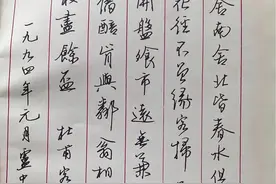 舍南舍北皆春水但
花徑不曾緣客掃
開盤飧市遠無兼
醅肯與鄰翁相
取盡餘盃 杜甫客
一九九四年元月靈中